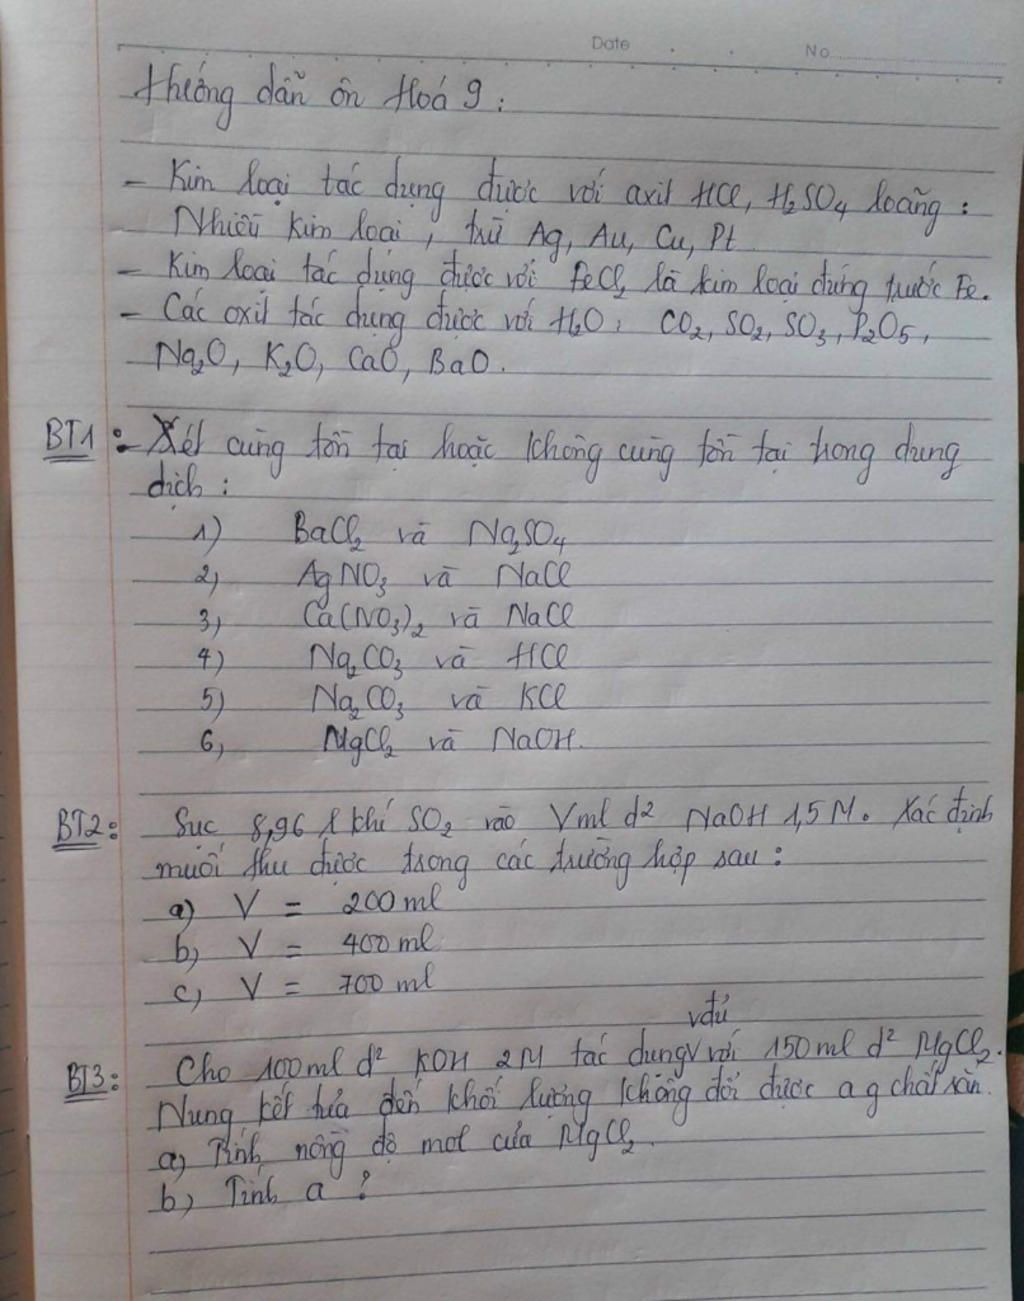 Date No
Hướng dẫn ôn Hoá 9 :
- Kim loại tác dụng được với axit HCl, H₂SO₄ loãng :
Nhiều kim loại, trừ Ag, Au, Cu, Pt
- Kim loại tác dụng được với FeCl₂ là kim loại đứng trước Fe.
- Các oxit tác dụng được với H₂O : CO₂, SO₂, SO₃, P₂O₅,
Na₂O, K₂O, CaO, BaO.
BT1 : - Xét cùng tồn tại hoặc không cùng tồn tại trong dung
dịch :
1) BaCl₂ và Na₂SO₄
2) AgNO₃ và NaCl
3) Ca(NO₃)₂ và NaCl
4) Na₂CO₃ và HCl
5) Na₂CO₃ và KCl
6) MgCl₂ và NaOH.
BT2 : Sục 8,96 l khí SO₂ vào Vml d² NaOH 1,5 M. Xác định
muối thu được trong các trường hợp sau :
a) V = 200 ml
b) V = 400 ml
c) V = 700 ml
vđủ
BT3 : Cho 100ml d² KOH 2M tác dụng với 150 ml d² MgCl₂.
Nung kết tủa đến khối lượng không đổi được a g chất rắn.
a) Tính nồng độ mol của MgCl₂.
b) Tính a ?